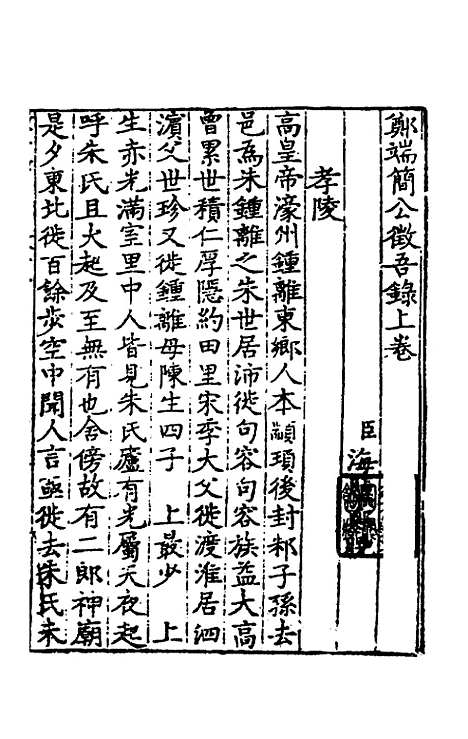 鄭端簡公徵吾錄上卷
臣海
孝陵
高皇帝濠州鍾離東鄉人本顓頊後封邾子孫去
邑爲朱鍾離之朱世居沛徙句容句容族益大高
曾累世積仁厚隱約田里宋季大父徙渡淮居泗
濱父世珍又徙鍾離母陳生四子　上最少　上
生赤光滿室里中人皆見朱氏廬有光屬天夜起
呼朱氏且火起及至無有也舍傍故有二郎神廟
是夕東北徙百餘步空中聞人言亟徙去朱氏未